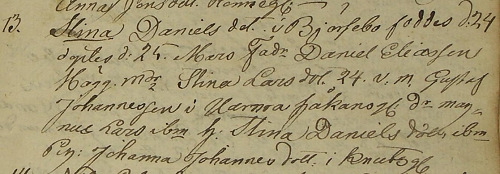 Annas Jonsdot.
13. Stina Daniels dot. i Bjorsebo foddes d: 24
döptes d: 25. Mars fadr Daniel Eliæsen
Högg mdr Stina Lars dot. 24. v. m Gustaf
Johannesen i Norrora Håkanog: dr. mag-
nus Lars ibm h: Stina Daniels dott. ibm
Pig: Johanna Johannes dott: i